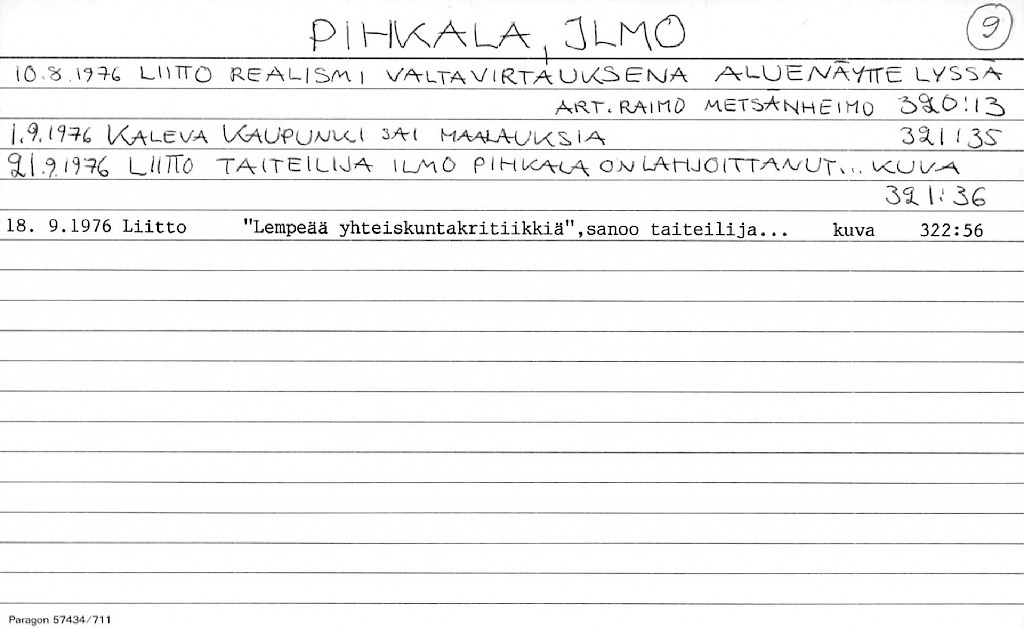 PIHKALA, ILMO 9
10.8.1976 LIITTO REALISMI VALTAVIRTAUKSENA ALUENÄYTTELYSSÄ
ART. RAIMO METSÄNHEIMO 320:13
1.9.1976 KALEVA KAUPUNKI SAI MAALAUKSIA 321:35
21.9.1976 LIITTO TAITEILIJA ILMO PIHKALA ON LAHJOITTANUT... KUVA
321:36
18. 9.1976 Liitto "Lempeää yhteiskuntakritiikkiä",sanoo taiteilija... kuva 322:56
Paragon 57434/711